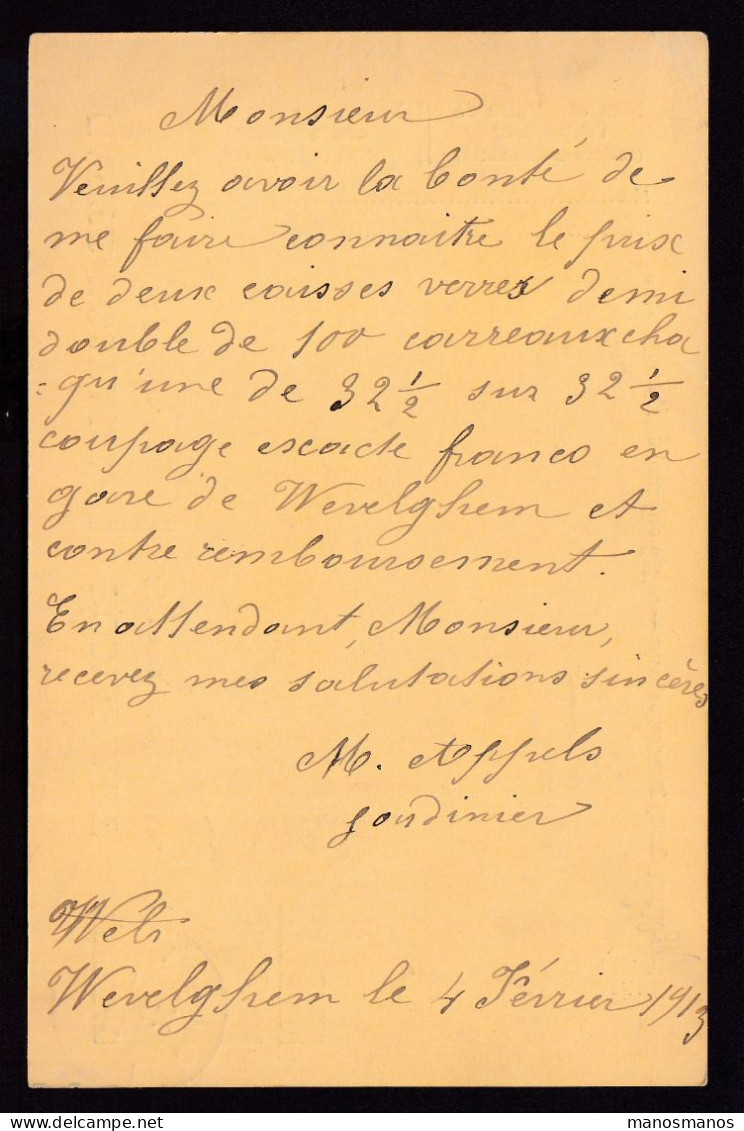 Monsieur
Veuillez avoir la bonté de
me faire connaitre le prix
de deux caisses verres demi
double de 100 carreaux cha
=qu'une de 32 1/2 sur 32 1/2
coupage exacte franco en
gare de Wevelghem et
contre remboursement.
En attendant, Monsieur,
recevez mes salutations sincères
M. Appels
jardinier
Wevelghem le 4 Février 1913
manosmanos